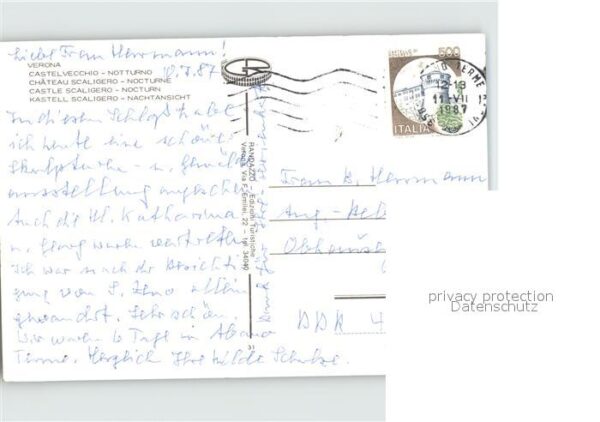 Liebe Frau Herrmann!
VERONA
CASTELVECCHIO - NOTTURNO
CHÂTEAU SCALIGERO - NOCTURNE
CASTLE SCALIGERO - NOCTURN
KASTELL SCALIGERO - NACHTANSICHT
10.7.87
In diesem Schloß habe
ich heute eine schöne
Skulpturen- u. Gemälde
ausstellung angesehen
Auch die hl. Katharina
u. Georg waren vertreten
Ich war nach der Besichti
gung von S. Zeno allein
gewandert. Sehr schön.
Wir waren 6 Tage in Abano
Terme. Herzlich Ihre Hilde Schulze.
RANDAZZO - Edizioni Turistiche
Verona Via F. Emilei, 22 - Tel. 34040
31
CASTELLO DI
500
ITALIA
TERME
12-13
11-VII
1987
Frau Herrmann
DDR 4
privacy protection
Datenschutz